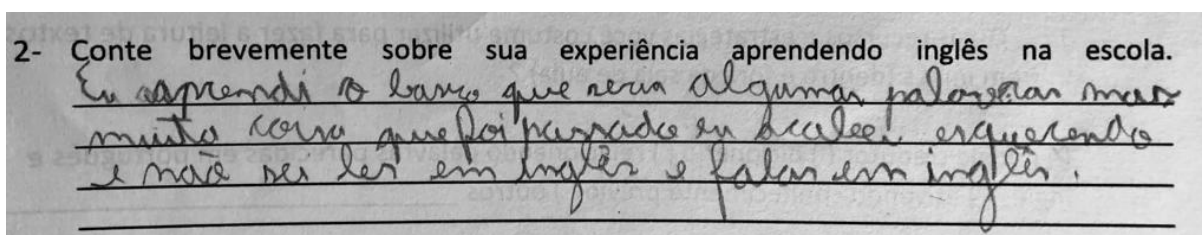 2- Conte brevemente sobre sua experiência aprendendo inglês na escola.
Eu aprendi o basico que seria algumas palavras mas
muita coisa que foi passado eu acabei esquecendo
e não sei ler em inglês e falar em inglês.